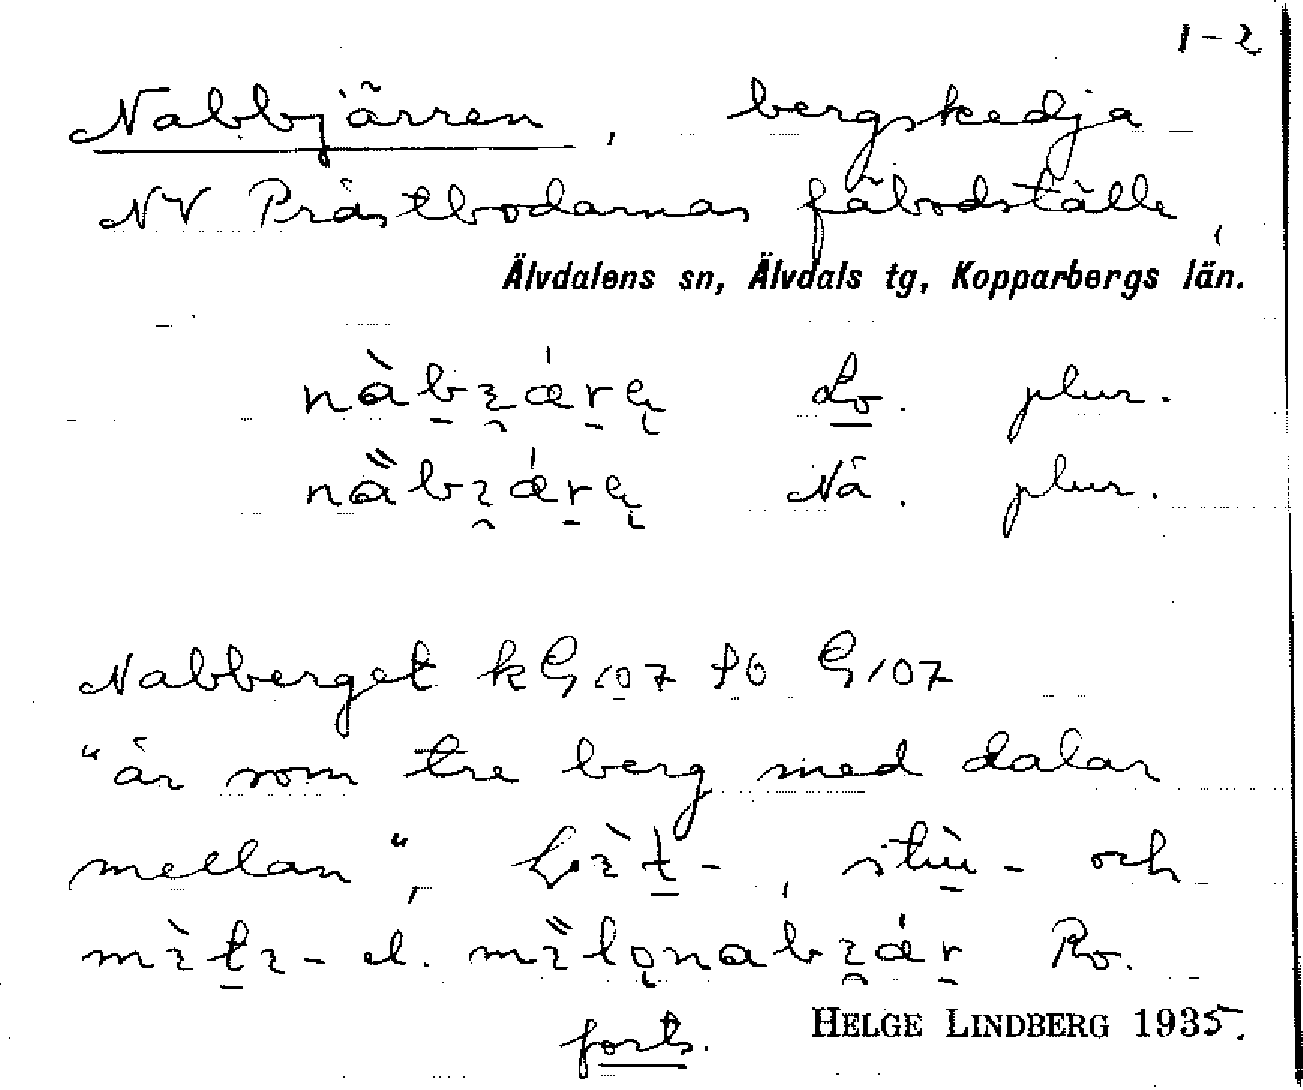 1-2
Nabbjärren, bergskedja
NV Prästbodarnas fäbodställe,
Älvdalens sn, Älvdals tg, Kopparbergs län.
Lo. plur.
Nä. plur.
Nabberget kG107 fö G107
"är som tre berg med dalar
mellan", och
el. Ro.
forts. HELGE LINDBERG 1935.